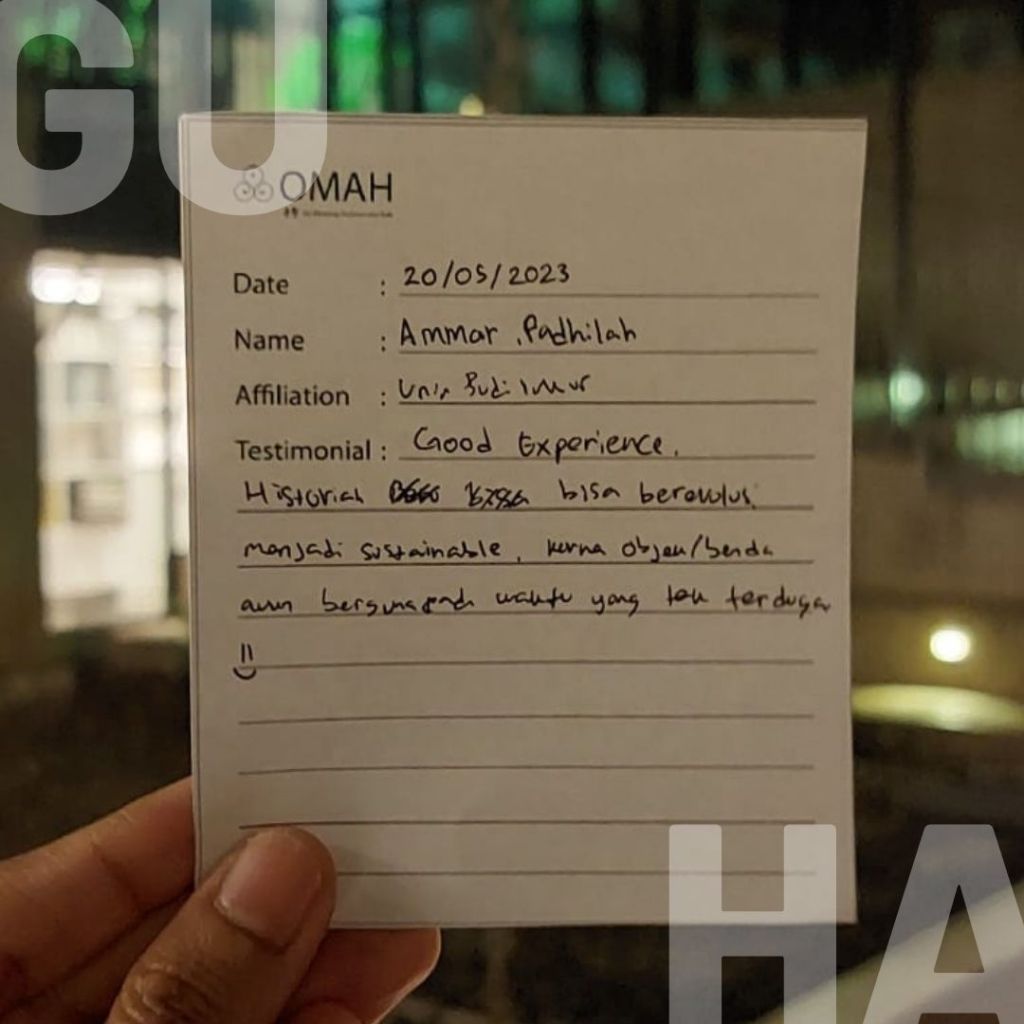 GU
OMAH
Date : 20/05/2023
Name : Ammar . Padhilah
Affiliation : Univ Budi luhur
Testimonial : Good Experience.
Historial bisa berevolusi
menjadi sustainable, karna objek/benda
akan berguna pada waktu yang tak terduga
HA